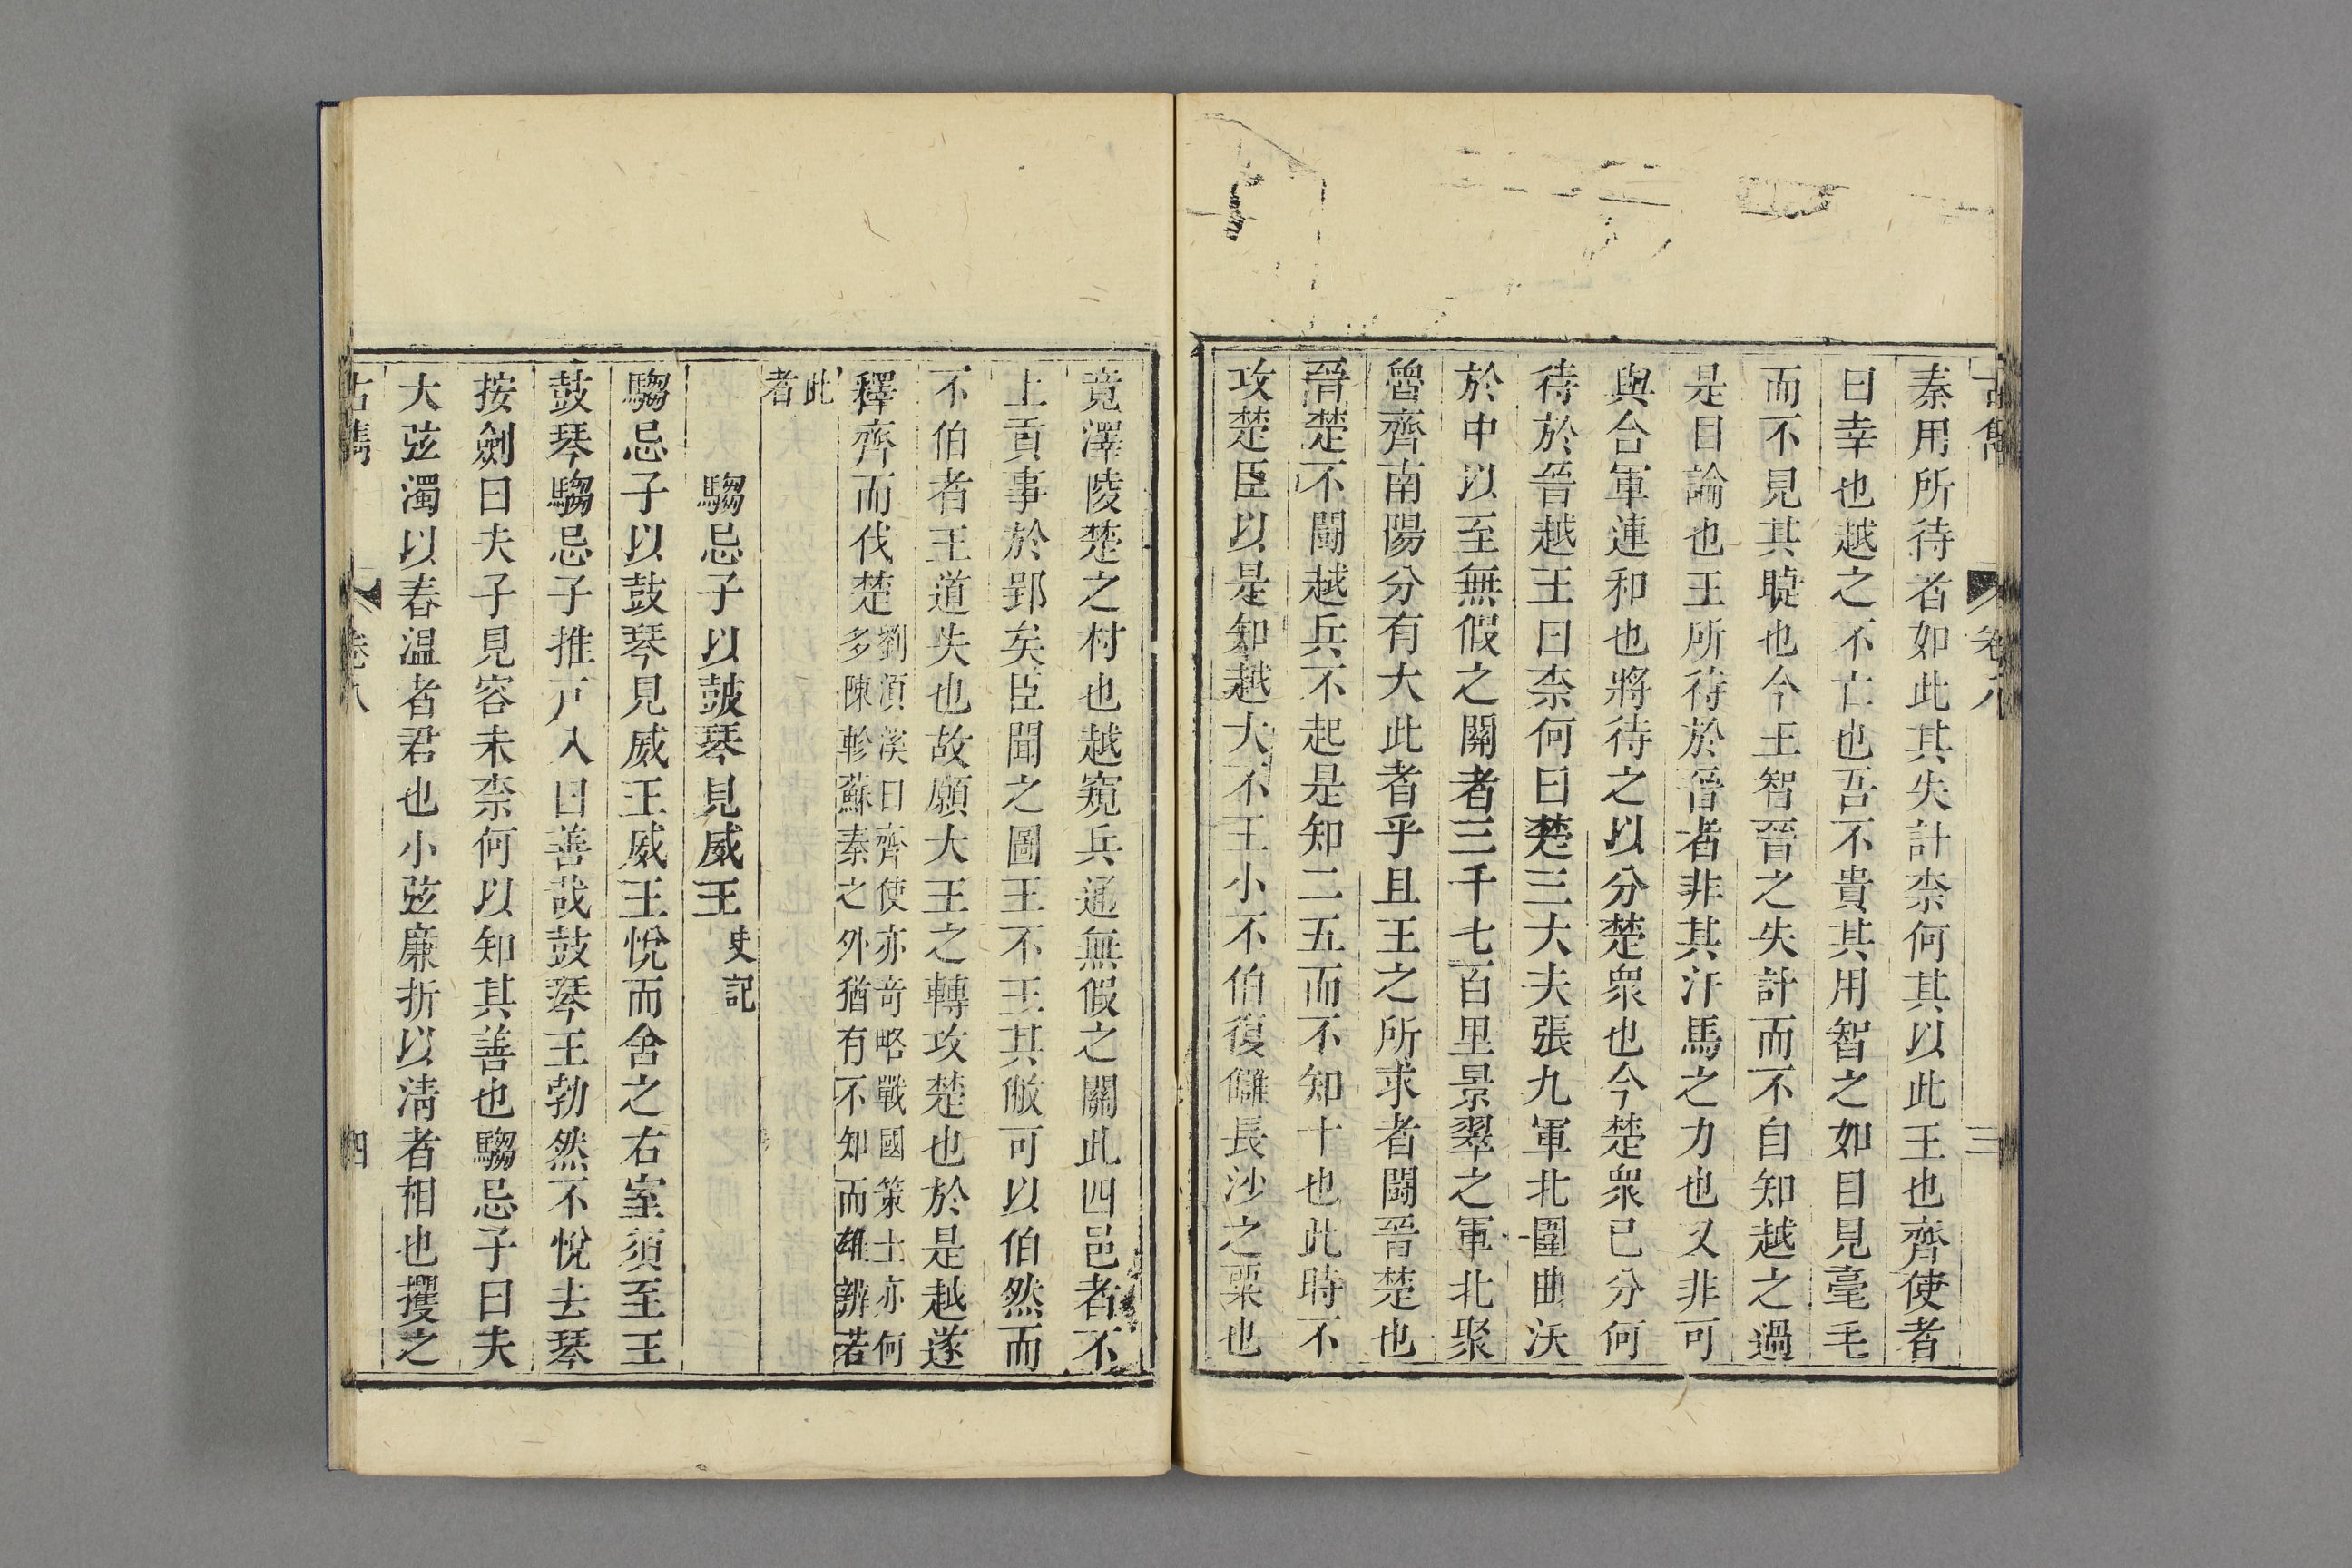 古雋 卷八 三
秦用所待者如此其失計柰何其以此王也齊使者
曰幸也越之不亡也吾不貴其用智之如目見毫毛
而不見其睫也今王智晉之失計而不自知越之過
是目論也王所待於晉者非其汗馬之力也又非可
與合軍連和也將待之以分楚衆也今楚衆已分何
待於晉越王曰柰何曰楚三大夫張九軍北圍曲沃
於中以至無假之關者三千七百里景翠之軍北聚
魯齊南陽分有大此者乎且王之所求者鬪晉楚也
晉楚不鬪越兵不起是知二五而不知十也此時不
攻楚臣以是知越大不王小不伯復讎長沙之粟也
竟澤陵楚之村也越窺兵通無假之關此四邑者不
上貢事於郢矣臣聞之圖王不王其敝可以伯然而
不伯者王道失也故願大王之轉攻楚也於是越遂
釋齊而伐楚
劉湏溪曰齊使亦奇略戰國策士亦何
多陳軫蘇秦之外猶有不知而雄辨若
此
者
騶忌子以鼓琴見威王史記
騶忌子以鼓琴見威王威王悅而舍之右室須至王
鼓琴騶忌子推戸入曰善哉鼓琴王勃然不悅去琴
按劍曰夫子見容未柰何以知其善也騶忌子曰夫
大弦濁以春温者君也小弦廉折以淸者相也攫之
古雋 卷八 四